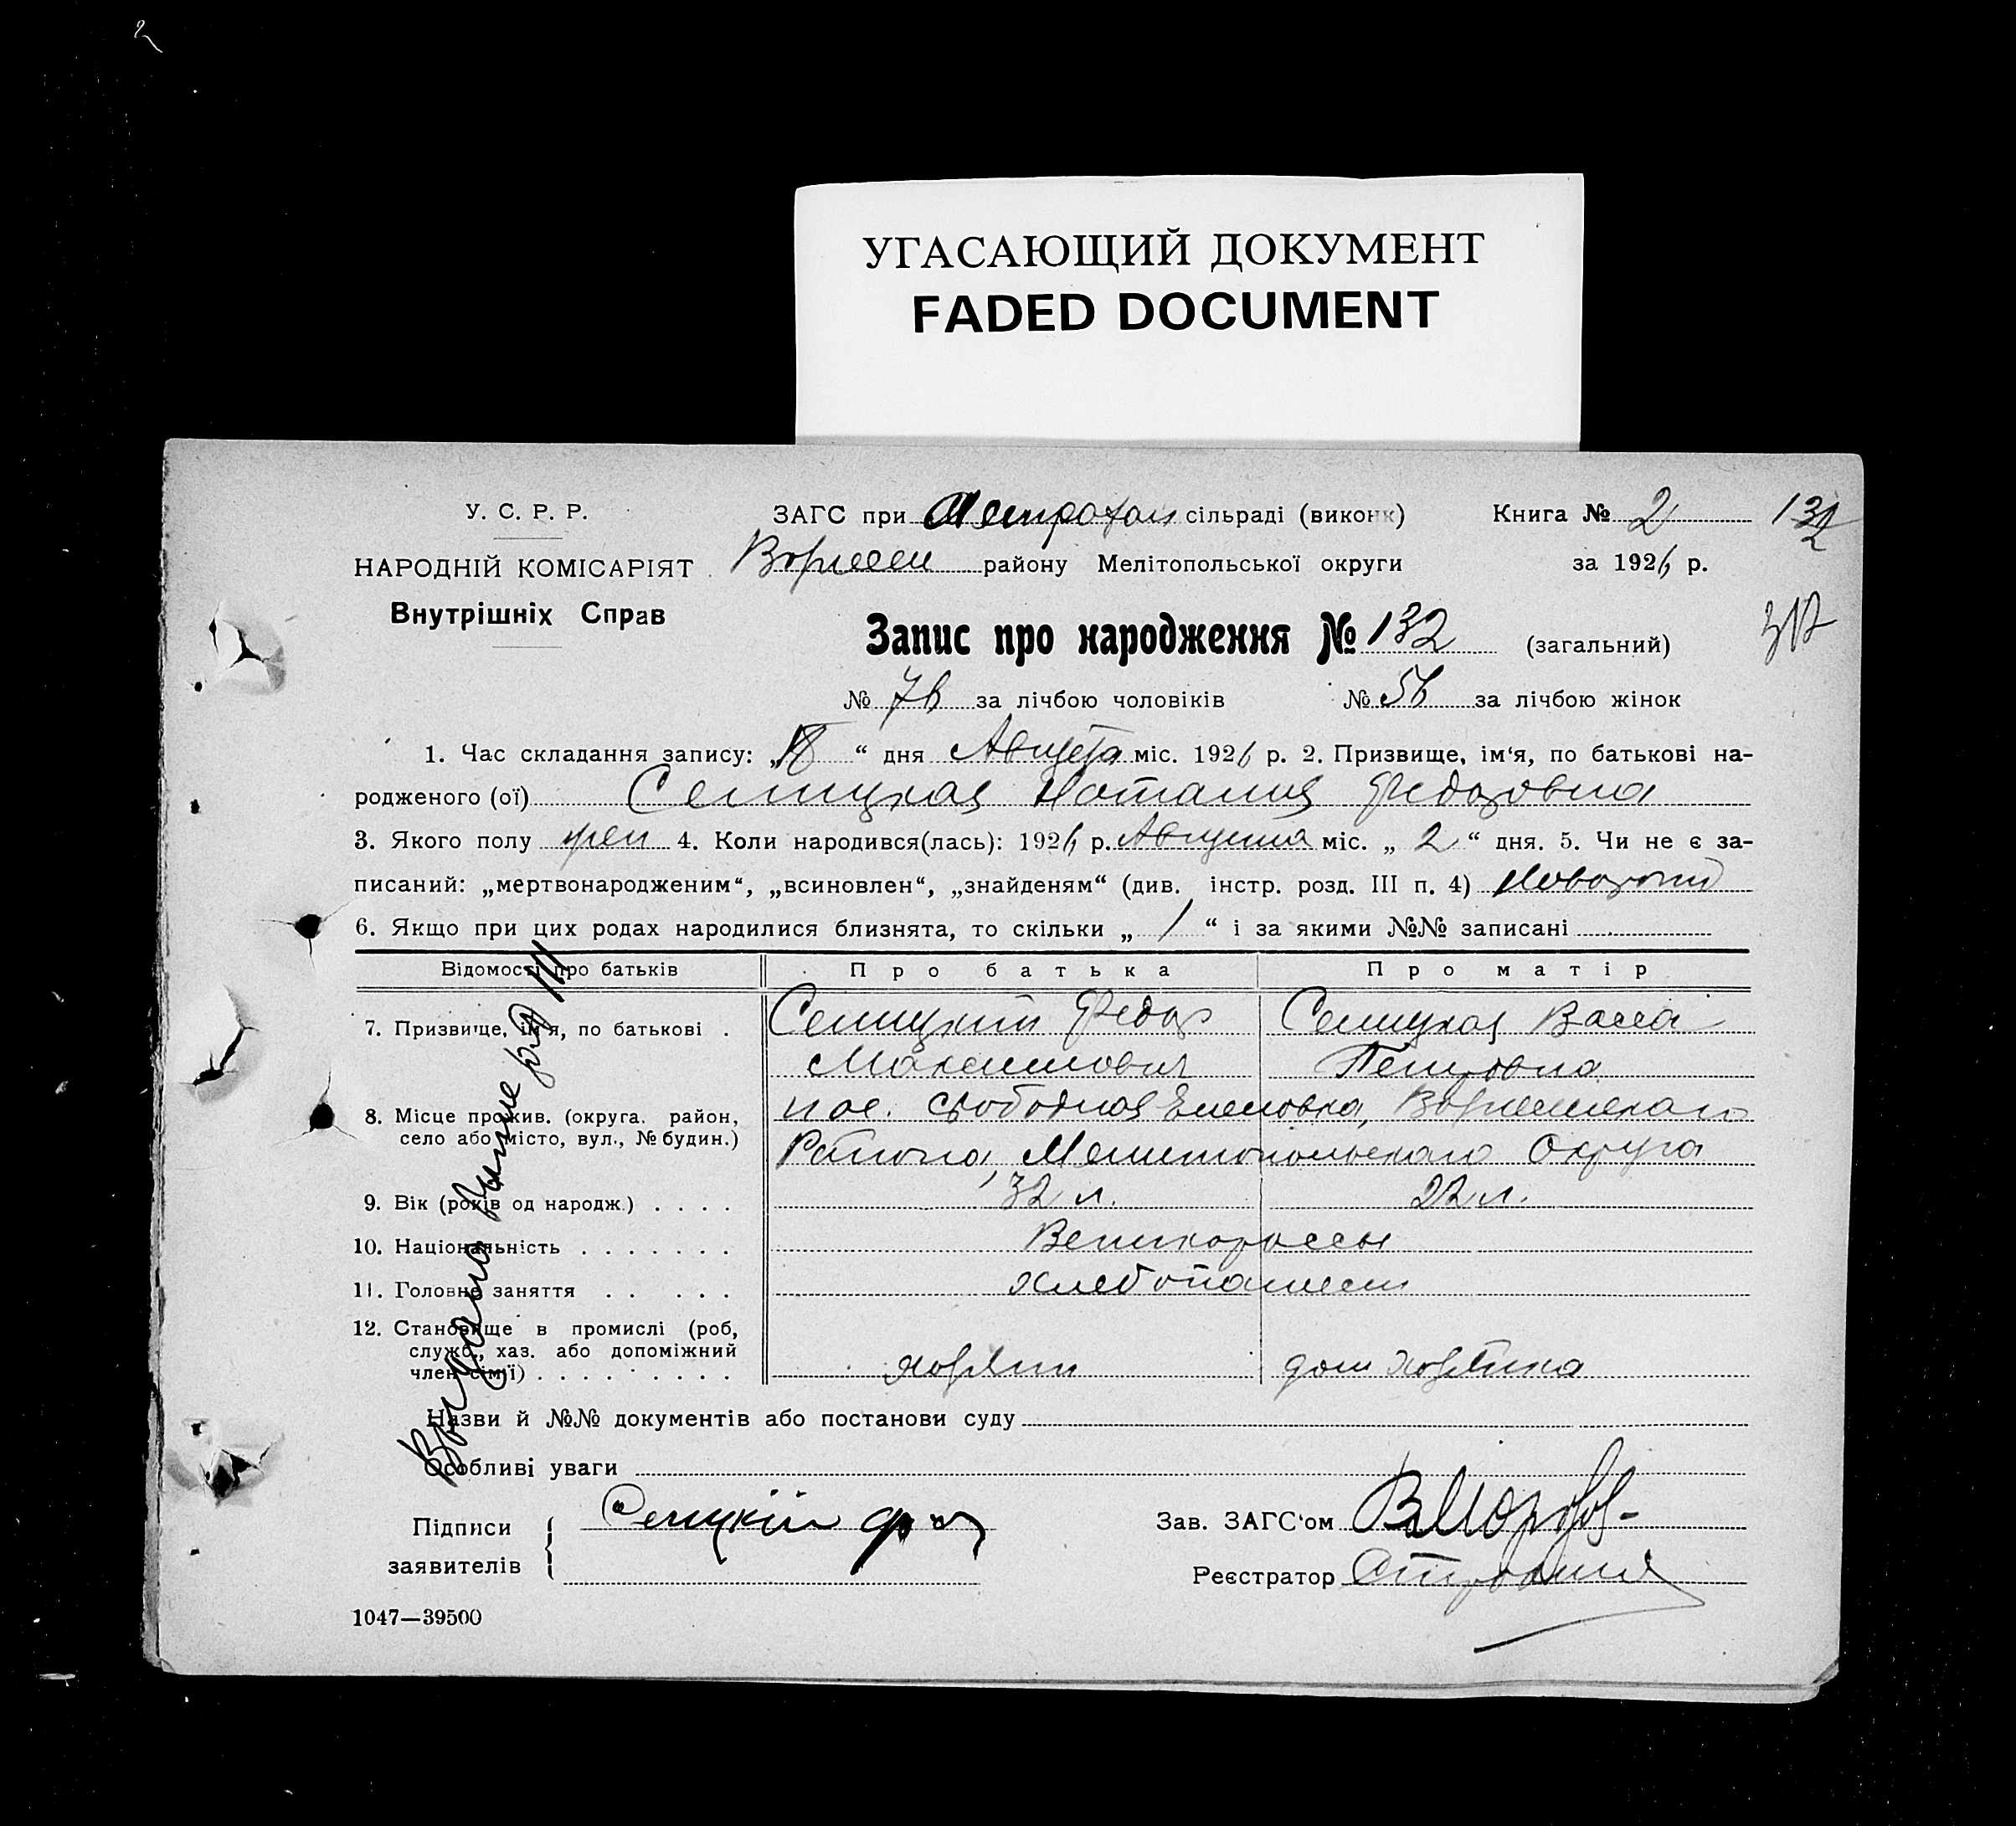 2
УГАСАЮЩИЙ ДОКУМЕНТ
FADED DOCUMENT
У. С. Р. Р.
НАРОДНІЙ КОМІСАРІЯТ
Внутрішніх Справ
ЗАГС при сільраді (виконк)
району Мелітопольської округи
Книга № 2
за 1926 р.
132
Запис про народження № 132 (загальний)
№ 76 за лічбою чоловіків № 56 за лічбою жінок
1. Час складання запису: „ “ дня Августа міс. 1926 р. 2. Призвище, ім‘я, по батькові на-
родженого (ої) Селицкая Наталия Федоровна
3. Якого полу жен 4. Коли народився(лась): 1926 р. Августа міс. „ 2 “ дня. 5. Чи не є за-
писаний: „мертвонародженим“, „всиновлен“, „знайденям“ (див. інстр. розд. III п. 4)
6. Якщо при цих родах народилися близнята, то скільки „ / “ і за якими №№ записані
Відомості про батьків Про батька Про матір
7. Призвище, ім‘я, по батькові . Селицкий Федор Селицкая Васса
Максимович Петровна
8. Місце прожив. (округа. район, пос. свободная Еленовка,
село або місто, вул., № будин.) Района, Мелитопольскаго Округа
9. Вік (років од народж.) . . . . 32 л. 22 л.
10. Національність . . . . . . . Великороссы
11. Головне заняття . . . . . хлебопашест
12. Становище в промислі (роб,
служб., хаз. або допоміжний
член сім‘ї) . . . . . . . . . хозяин дом хозяйка
Назви й №№ документів або постанови суду
Особливі уваги
Підписи
заявителів
Селицкій
Зав. ЗАГС‘ом
Реєстратор
1047—39500